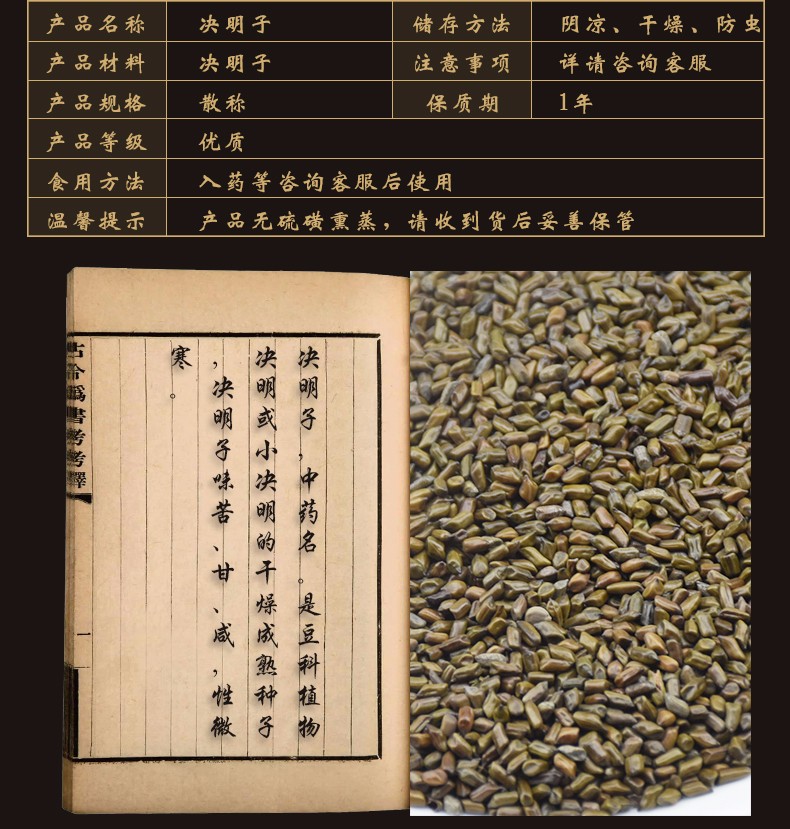 产品名称 决明子 储存方法 阴凉、干燥、防虫
产品材料 决明子 注意事项 详请咨询客服
产品规格 散称 保质期 1年
产品等级 优质
食用方法 入药等咨询客服后使用
温馨提示 产品无硫磺熏蒸，请收到货后妥善保管
决明子，中药名。是豆科植物
决明或小决明的干燥成熟种子
，决明子味苦、甘、咸，性微
寒。
古今偽書考考釋
一